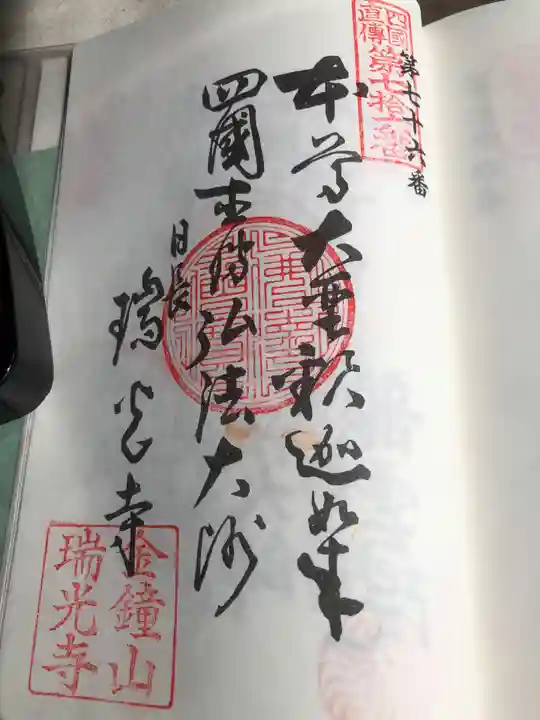 第七十六番
四國
直傳
第七拾六番
本尊大聖釈迦如来
四國直傳弘法大師
日長
瑞光寺
金鐘山
瑞光寺